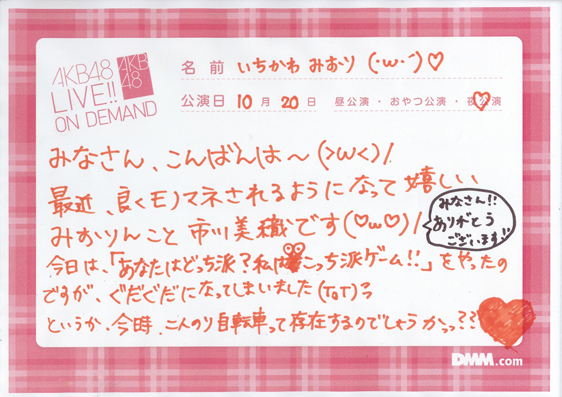 AKB48
LIVE!!
ON DEMAND
AKB
48
名前 いちかわ みおり (・ω・´)♡
公演日 10月 20日 昼公演・おやつ公演・夜公演
みなさん、こんばんは〜(>ω<)/
最近、良くモノマネされるようになって嬉しい
みおりんこと市川美織です(♡ω♡)/
みなさん!!
ありがとう
ございます!!
今日は、「あなたはどっち派?私はこっち派ゲーム!!」をやったの
ですが、ぐだぐだになってしまいました(ToT)
というか、今時、二人のり自転車って存在するのでしょうかっっ??
DMM.com